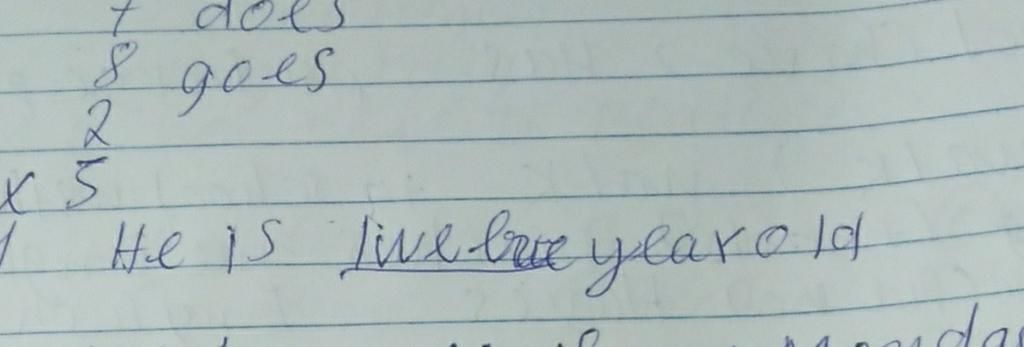 7 does
8 goes
2
x 5
1 He is live year old